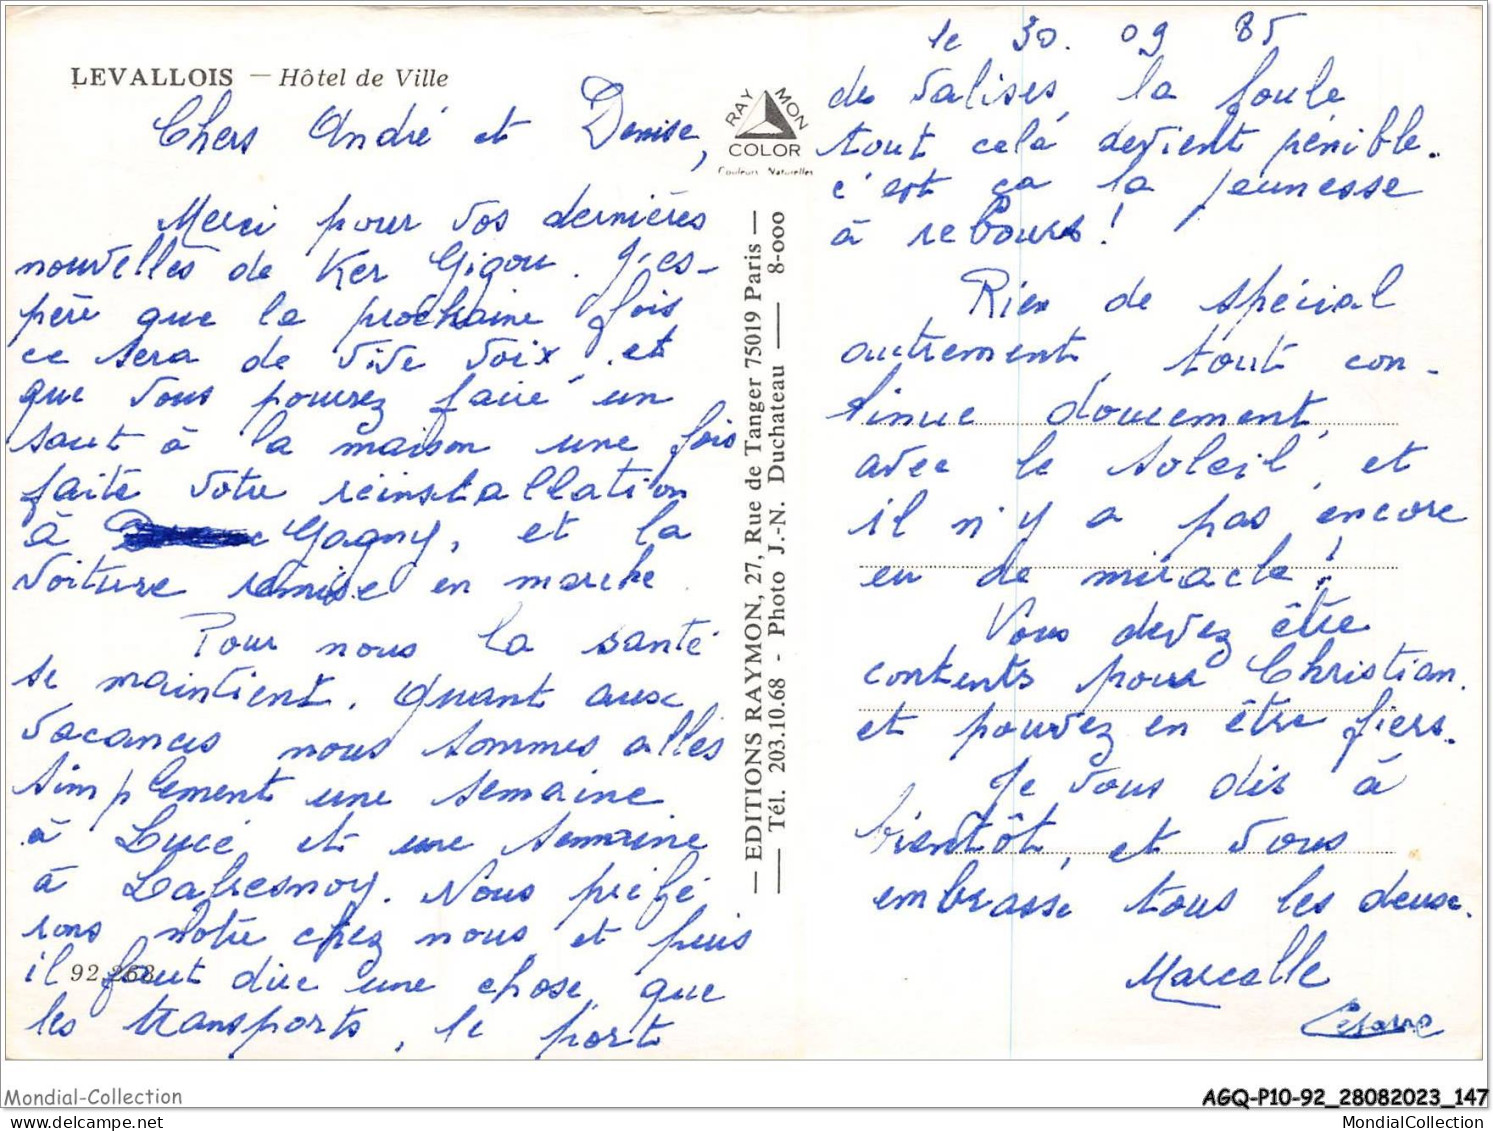 LEVALLOIS — Hôtel de Ville
Chers André et Denise,
Merci pour vos dernières
nouvelles de Ker Gigou. J'es-
père que la prochaine fois
ce sera de vive voix, et
que vous pourrez faire un
saut à la maison une fois
faite votre réinstallation
à Gagny, et la
voiture remise en marche.
Pour nous la santé
se maintient. Quant aux
vacances nous sommes allés
simplement une semaine
à Lucé et une semaine
à Lafresnoy. Nous préfé
rons notre chez nous et puis
il faut dire une chose, que
les transports, le port
92.268
RAYMON
COLOR
Couleurs Naturelles
— EDITIONS RAYMON, 27, Rue de Tanger 75019 Paris —
— Tél. 203.10.68 - Photo J.-N. Duchateau — 8-000
le 30. 09 85
de valises, la foule
tout celà devient pénible.
c'est ça la jeunesse
à rebours!
Rien de spécial
autrement, tout con-
tinue doucement,
avec le soleil, et
il n'y a pas encore
eu de miracle!
Vous devez être
contents pour Christian.
et pouvez en être fiers.
Je vous dis à
bientôt, et vous
embrasse tous les deux.
Marcelle
Mondial-Collection
AGQ-P10-92_28082023_147
www.mondialcollection.net
MondialCollection